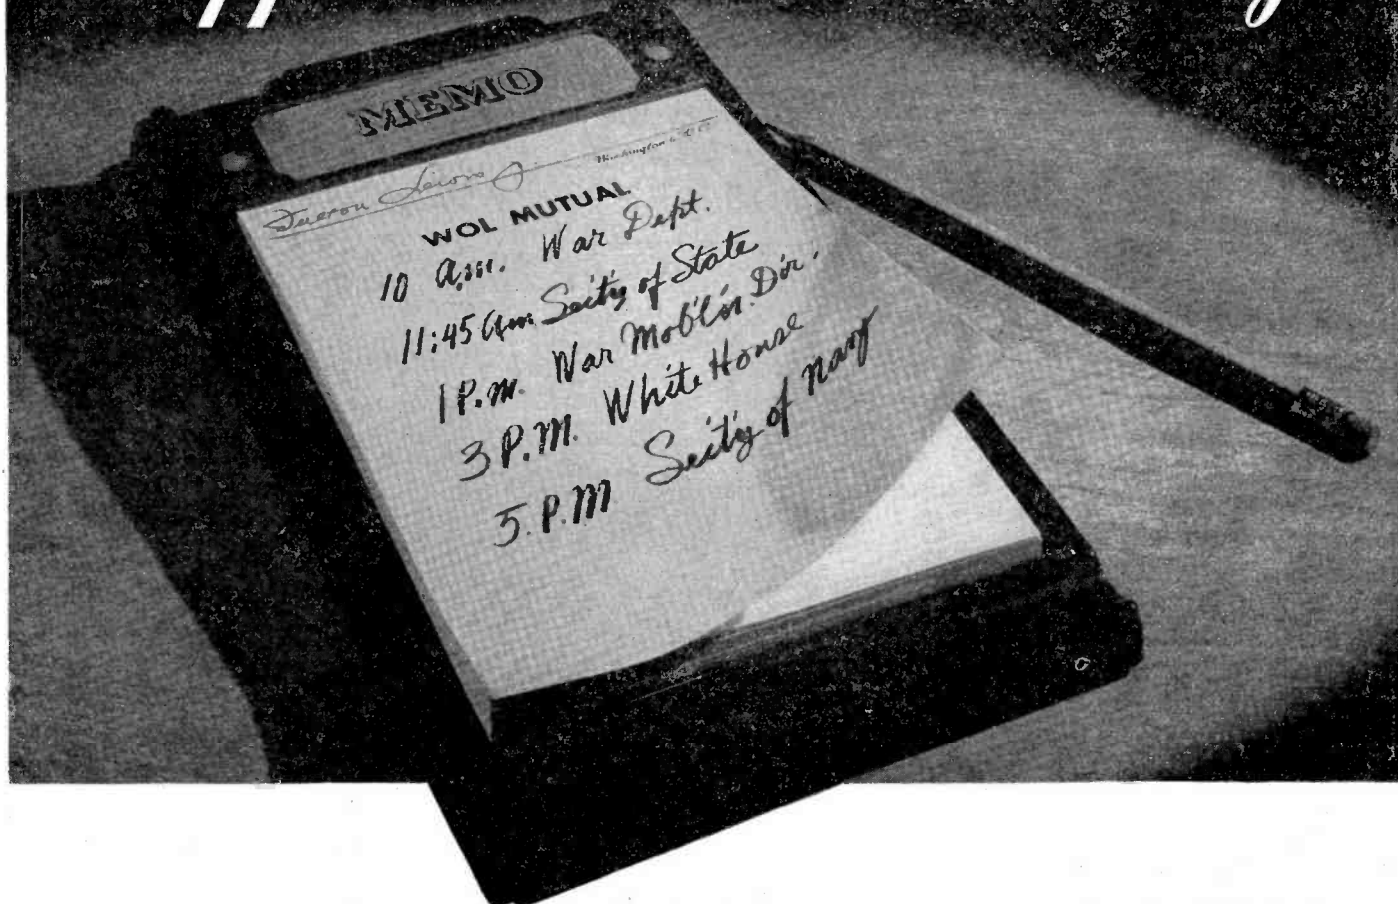 MEMO
Fulton Lewis Jr.
Washington 6 D.C.
WOL MUTUAL
10 a.m. War Dept.
11:45 am Sec'ty of State
1 P.m. War Mob'l'n. Dir.
3 P.M. White House
5. P.M Sec'ty of navy